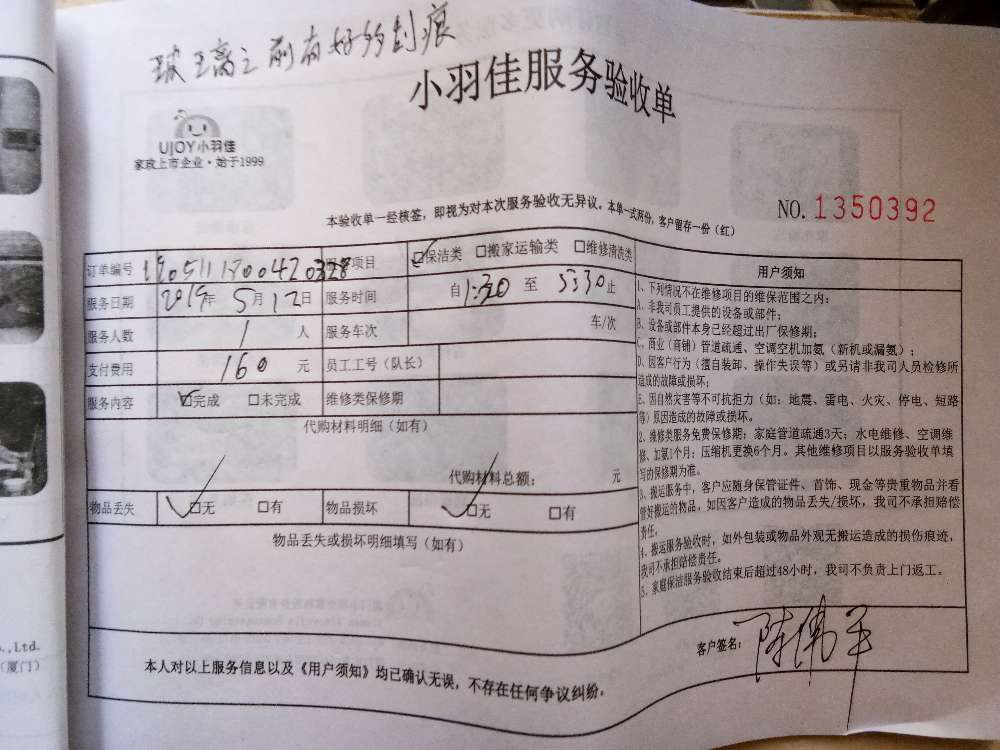 玻王离之前有好多刮痕
小羽佳服务验收单
UJOY小羽佳
家政上市企业·始于1999
NO. 1350392
本验收单一经核签，即视为对本次服务验收无异议。本单一式两份，客户留存一份（红）
订单编号 190511180042 0328 项目 ☑保洁类 □搬家运输类 □维修清洗类
服务日期 2019年5月12日 服务时间 自1:30 至 5:30止
服务人数 1 人 服务车次 车/次
支付费用 160 元 员工工号（队长）
服务内容 ☑完成 □未完成 维修类保修期
代购材料明细（如有）
代购材料总额： 元
物品丢失 ☑无 □有 物品损坏 ☑无 □有
物品丢失或损坏明细填写（如有）
用户须知
1、下列情况不在维修项目的维保范围之内：
A、非我司员工提供的设备或部件；
B、设备或部件本身已经超过出厂保修期；
C、商业（商铺）管道疏通、空调空机加氨（新机或漏氨）；
D、因客户行为（擅自装卸、操作失误等）或另请非我司人员检修所
造成的故障或损坏；
E、因自然灾害等不可抗拒力（如：地震、雷电、火灾、停电、短路
等）原因造成的故障或损坏。
2、维修类服务免费保修期：家庭管道疏通3天；水电维修、空调维
修、加氨1个月；压缩机更换6个月。其他维修项目以服务验收单填
写的保修期为准。
3、搬运服务中，客户应随身保管证件、首饰、现金等贵重物品并看
管好搬运的物品，如因客户造成的物品丢失/损坏，我司不承担赔偿
责任。
4、搬运服务验收时，如外包装或物品外观无搬运造成的损伤痕迹，
我司不承担赔偿责任。
5、家庭保洁服务验收结束后超过48小时，我司不负责上门返工。
客户签名：
本人对以上服务信息以及《用户须知》均已确认无误，不存在任何争议纠纷。
.,Ltd.
（厦门）